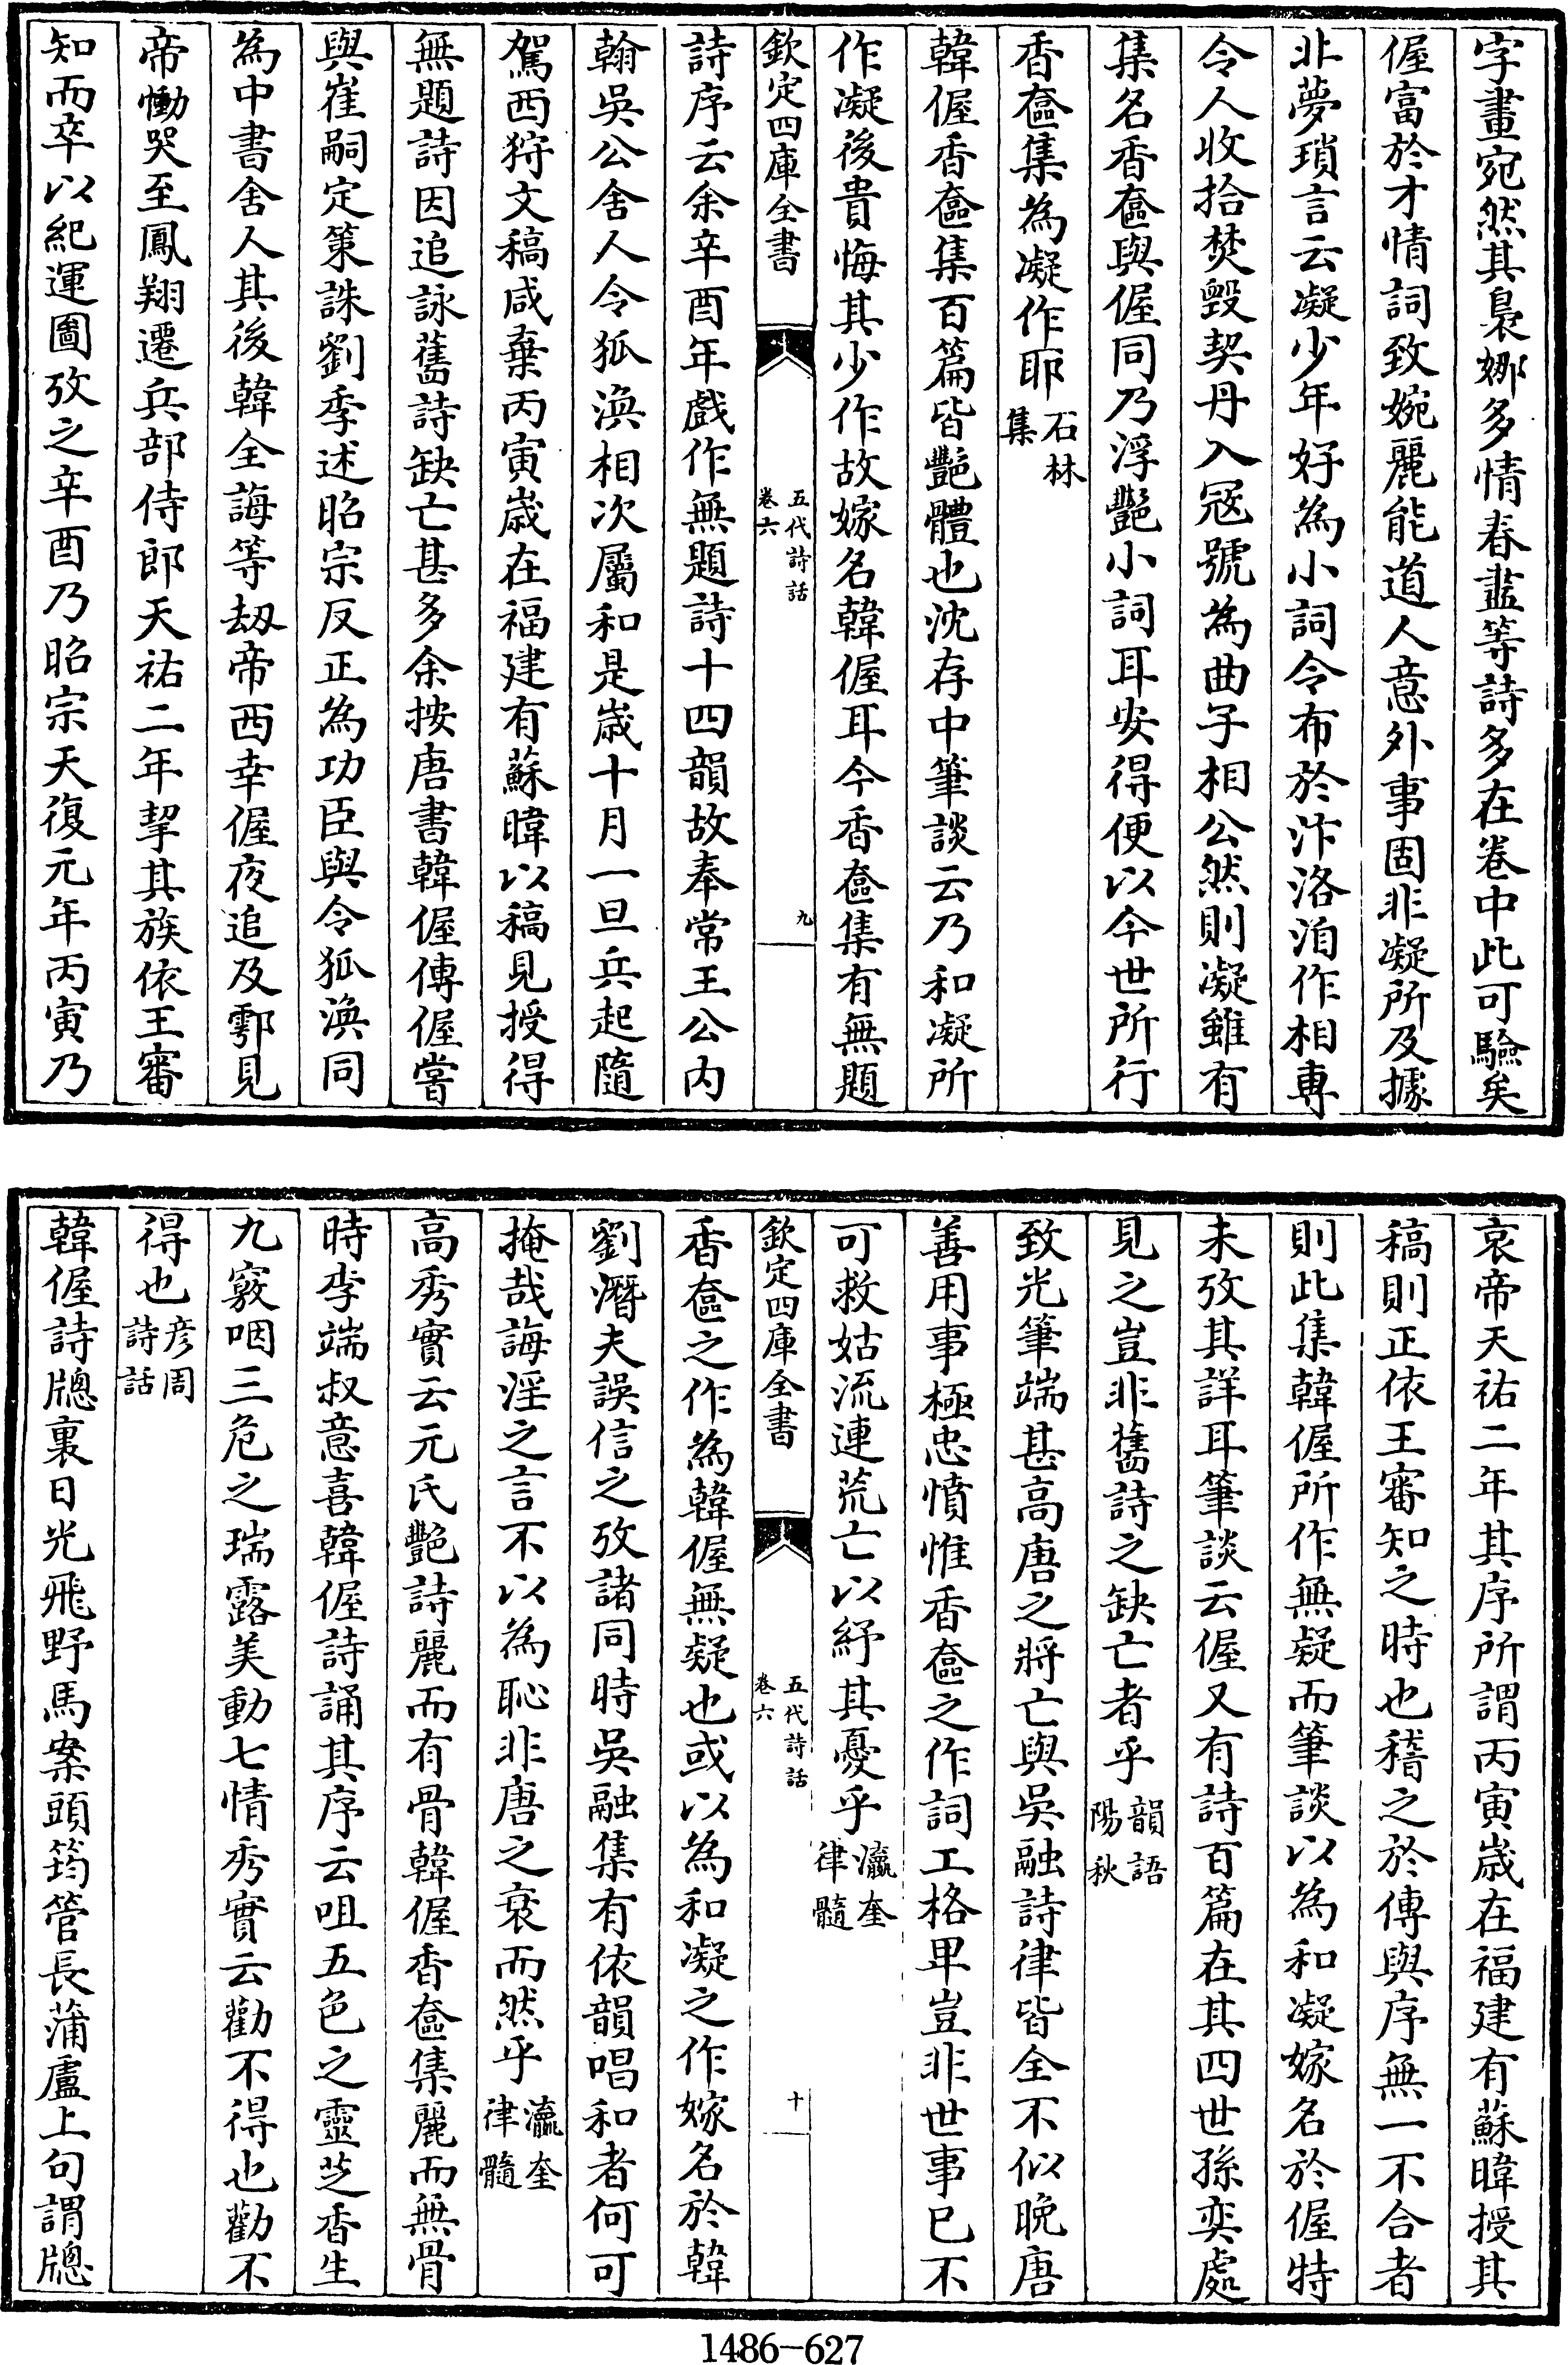 字畫宛然其裊娜多情春盡等詩多在卷中此可驗矣
偓富於才情詞致婉麗能道人意外事固非凝所及據
非夢瑣言云凝少年好為小詞令布於汴洛洎作相專
令人收拾焚毀契丹入冦號為曲子相公然則凝雖有
集名香奩與偓同乃浮豔小詞耳安得便以今世所行
香奩集為凝作耶石林集
韓偓香奩集百篇皆豔體也沈存中筆談云乃和凝所
作凝後貴悔其少作故嫁名韓偓耳今香奩集有無題
欽定四庫全書 五代詩話 卷六 九
詩序云余辛酉年戲作無題詩十四韻故奉常王公内
翰吳公舍人令狐渙相次屬和是歲十月一旦兵起隨
駕西狩文稿咸棄丙寅歲在福建有蘇暐以稿見授得
無題詩因追詠舊詩缺亡甚多余按唐書韓偓傳偓嘗
與崔嗣定策誅劉季述昭宗反正為功臣與令狐渙同
為中書舍人其後韓全誨等刼帝西幸偓夜追及鄠見
帝慟哭至鳳翔遷兵部侍郎天祐二年挈其族依王審
知而卒以紀運圖攷之辛酉乃昭宗天復元年丙寅乃
哀帝天祐二年其序所謂丙寅歲在福建有蘇暐授其
稿則正依王審知之時也稽之於傳與序無一不合者
則此集韓偓所作無疑而筆談以為和凝嫁名於偓特
未攷其詳耳筆談云偓又有詩百篇在其四世孫奕處
見之豈非舊詩之缺亡者乎韻語陽秋
致光筆端甚高唐之將亡與吳融詩律皆全不似晚唐
善用事極忠憤惟香奩之作詞工格卑豈非世事已不
可救姑流連荒亡以紓其憂乎瀛奎律髓
欽定四庫全書 五代詩話 卷六 十
香奩之作為韓偓無疑也或以為和凝之作嫁名於韓
劉潛夫誤信之攷諸同時吳融集有依韻唱和者何可
掩哉誨淫之言不以為恥非唐之衰而然乎瀛奎律髓
高秀實云元氏豔詩麗而有骨韓偓香奩集麗而無骨
時李端叔意喜韓偓詩誦其序云咀五色之靈芝香生
九竅咽三危之瑞露美動七情秀實云勸不得也勸不
得也彦周詩話
韓偓詩牕裏日光飛野馬案頭筠管長蒲盧上句謂牕
1486-627